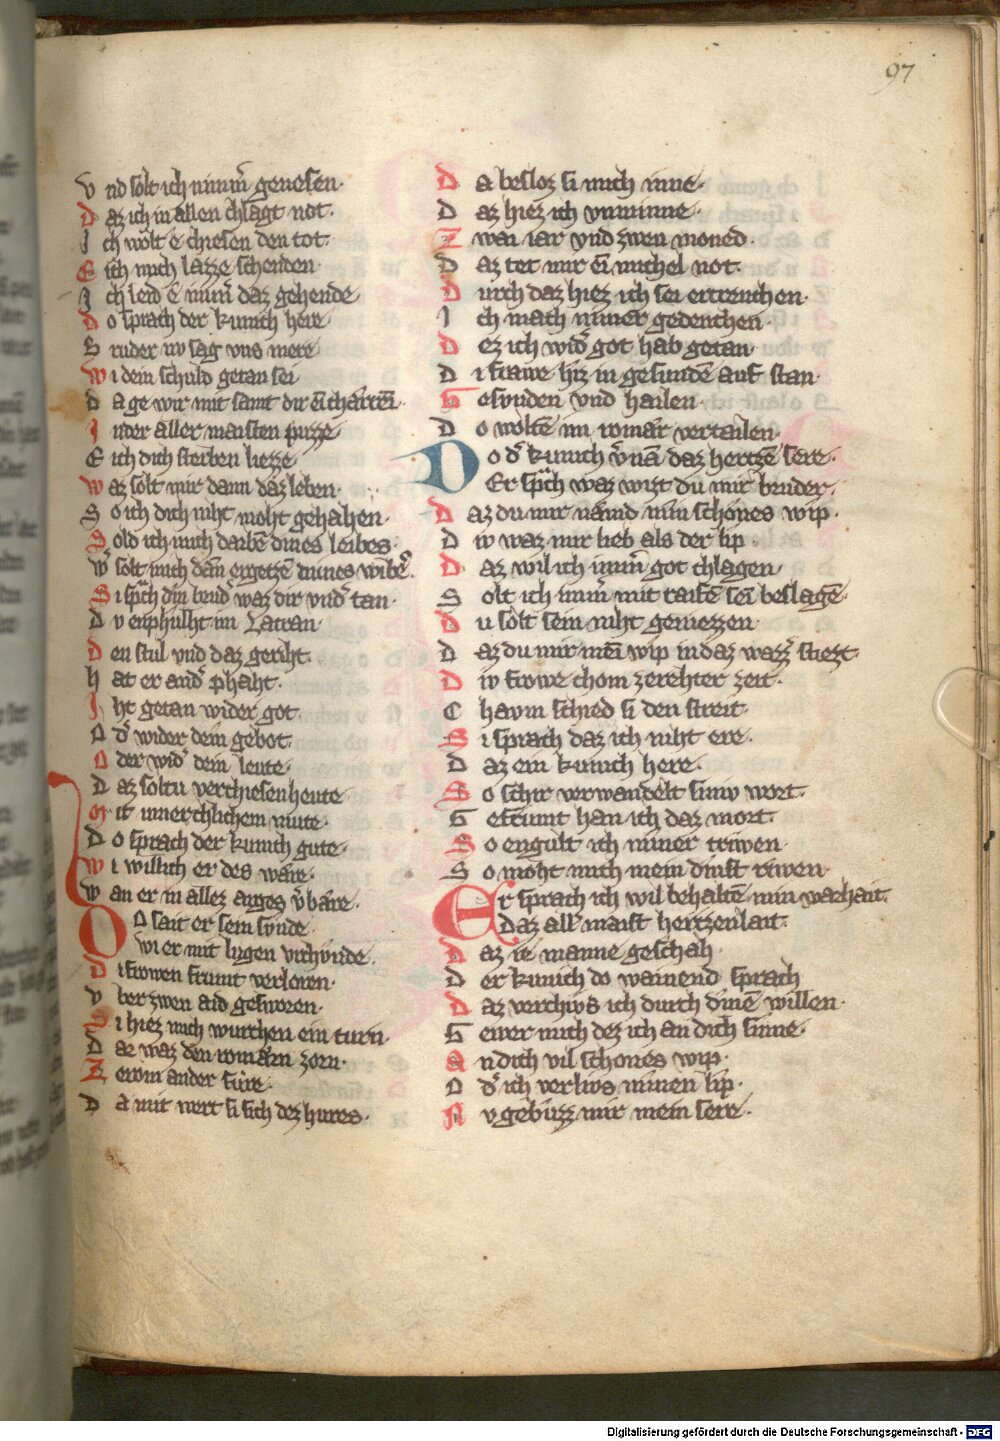 97
Vnd solt ich nimm̄ genesen·
Daz ich in allen chlagt not·
Ich wolt e chiesen den tot·
E ich mich lazze schenden·
Ich leid e nim̄ daz gehende·
Do sprach der kunich here·
Bruder nv sag vns mere·
Wi dein schuld getan sei
Dage wir mit samt dir
Inder aller maisten puzze·
E ich dich sterben liezze·
Waz solt mir dann daz leben·
So ich dich niht moht gehahen·
Sold ich mich darbē dines leibes·
Wˢ solt mich dan̄ ergetzē mines wibeˢ·
Si sp̄ch din brudˢ waz dir vndˢ tan·
Dv enphilht im Latran·
Den stul vnd daz geriht·
Hat er andˢ phaht·
Iht getan wider got·
Odˢ wider dein gebot·
Oder widˢ dein leute·
Daz soltu verchiesen heute·
Mit innerchlichem mute·
Do sprach der kunich gute·
Wi willich er des wære·
Wan er in allez anges v̄bære·
Do sait er sein svnde·
wi er mit lvgen vrchvnde·
Di frowen frumt verloren·
Vber zwen aid gesworen·
Si hiez mich wurchen ein turn·
Dar waz den romærn zorn·
Zerom ander sure·
Da mit wert si sich dez hures·
Da besloz si mich inne·
Daz hiez ich vnminne·
Zwai iar vnd zwen moned·
Daz tet mir ein michel not·
Durch daz hiez ich sei ertrenchen·
Ich mach nimer gedenchen·
Dez ich widˢ got hab getan·
Di frawe hiz in gesundē auf stan·
Gesvnden vnd hailen·
Do woltē im romær vertailen·
Do dˢ kunich v̄nā daz hertzē sere·
Er sp̄ch waz wizt du mir bruder·
Daz du mir næmd min schönes wip·
Div waz mir lieb als der lip·
Daz wil ich im̄ got chlagen·
Solt ich im̄ mit raisē sei beslagē·
Du solt sein niht geniezzen·
Daz du mir mei wip in daz wazzˢ stiezt·
Div frowe chom zerehter zeit·
Chavm schied si den streit·
Si sprach daz ich niht ere·
Daz ein kunich here·
So schir verwandelt siniv wort·
Gefrumt han ich daz mort·
So engult ich miner triwen·
So moht mich mein dinst riwen·
Er sprach ich wil behaltē min warhait·
Daz allˢ maist hertzenlait·
Daz ie manne geschah·
Der kunich do wainend sprach
Daz verchivs ich durch dinē willen·
Gewer mich dez ich an dich sinne·
An dich vil schones wip·
Odˢ ich verlivs minen lip·
Nv gebuzz mir mein sere·
Digitalisierung gefördert durch die Deutsche Forschungsgemeinschaft - DFG